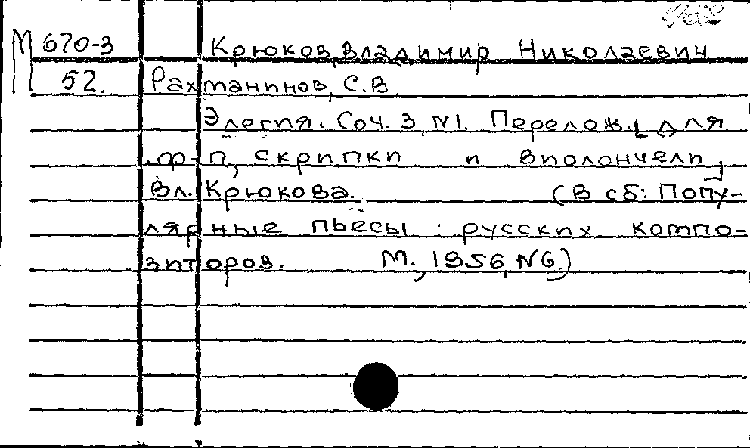 М 670-3 Крюков, Владимир Николаевич
52. Рахманинов, С.В.
Элегия. Соч. 3, №1. Перелож. для
ф-п, скрипки и виолончели,
Вл. Крюкова. (В сб: Попу-
лярные пьесы русских компо-
зиторов. М., 1956, №6.)